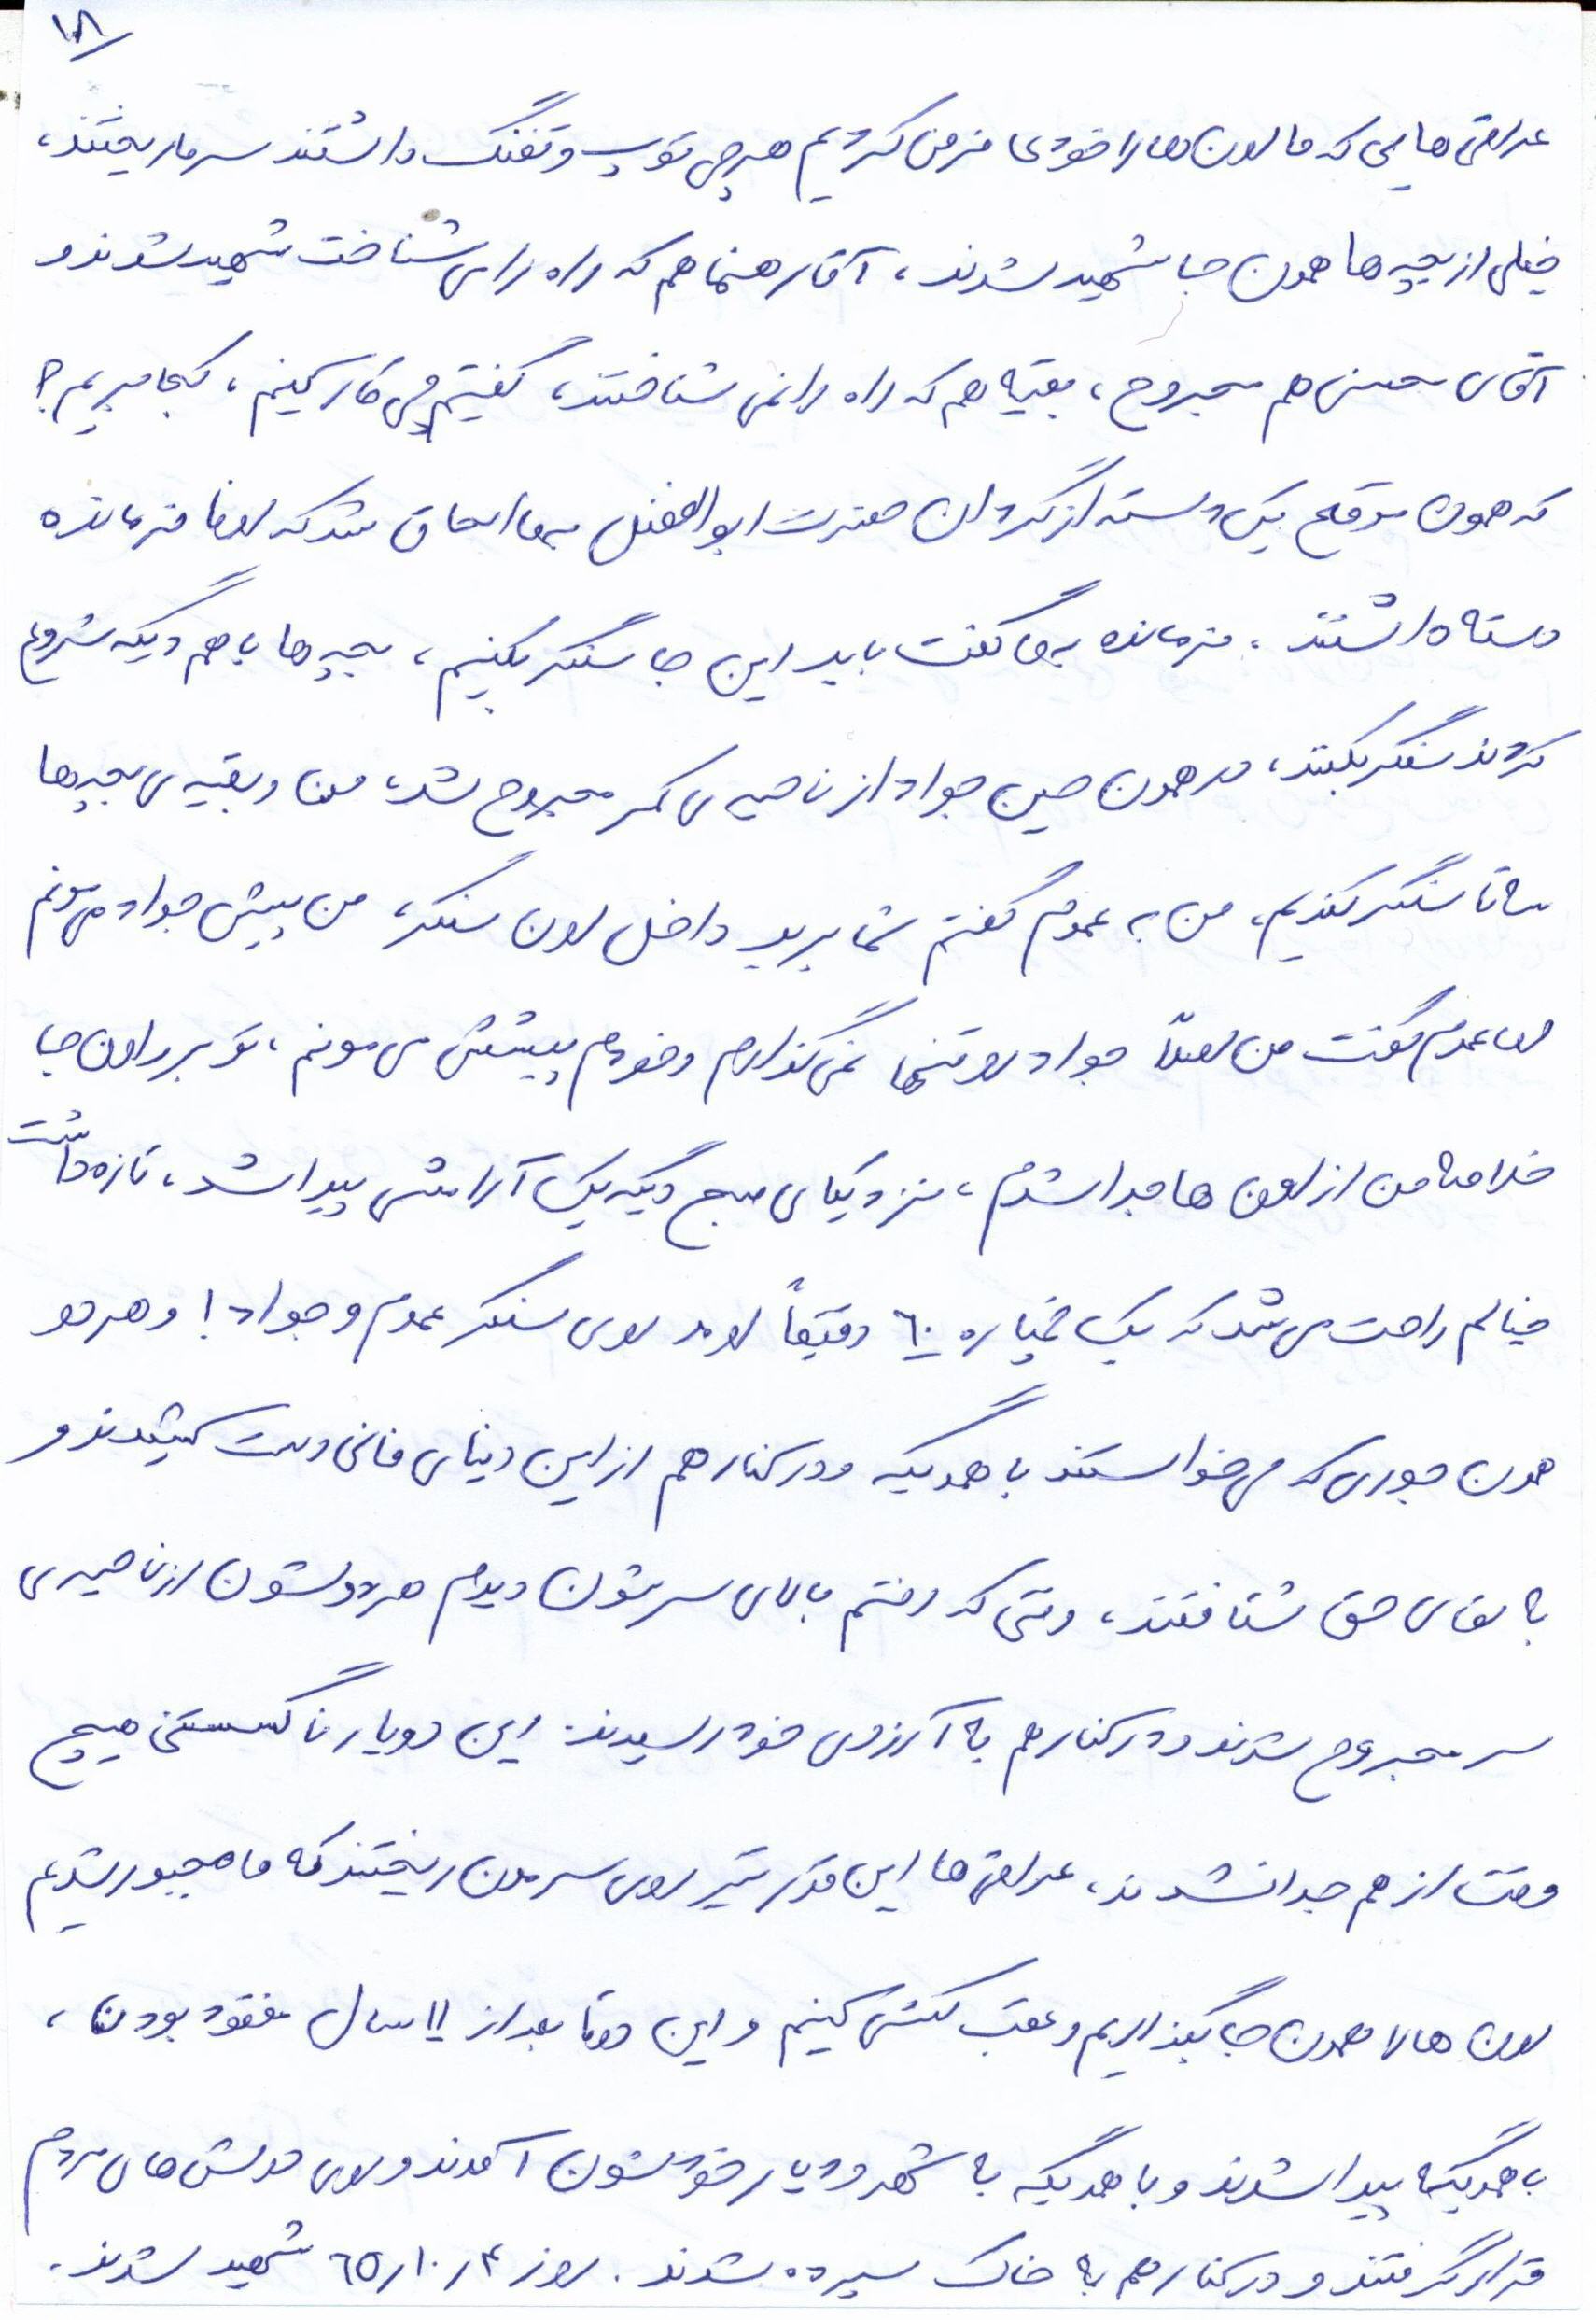 ۱۸
عراقی هایی که ما اون ها را خودی فرض کردیم هرچی توپ و تفنگ داشتند سر ما ریختند،
خیلی از بچه ها همون جا شهید شدند، آقا رهنما هم که راه را می شناخت شهید شدند و
آقای محسنی هم مجروح، بقیه هم که راه را نمی شناختند، گفتیم چی کار کنیم، کجا بریم؟
که همون موقع یک دسته از گردان حضرت ابوالفضل به ما الحاق شد که اونا فرمانده
دسته داشتند، فرمانده به ما گفت باید این جا سنگر بکنیم، بچه ها با هم دیگه شروع
کردند سنگر بکنند، در همون حین جواد از ناحیه ی کمر مجروح شد، من و بقیه ی بچه ها
سه تا سنگر کندیم، من به عموم گفتم شما برید داخل اون سنگر، من پیش جواد می مونم
اما عموم گفت من اصلاً جواد رو تنها نمی گذارم و خودم پیشش می مونم، تو برو اون جا
خلاصه من از اون ها جدا شدم، نزدیکای صبح دیگه یک آرامشی پیدا شد، تازه داشت
خیالم راحت می شد که یک خمپاره ۶۰ دقیقاً اومد روی سنگر عموم و جواد! و هر دو
همون جوری که می خواستند با همدیگه و در کنار هم از این دنیای فانی دست کشیدند و
به لقای حق شتافتند، وقتی که رفتم بالای سرشون دیدم هر دوشون از ناحیه ی
سر مجروح شدند و در کنار هم به آرزوی خود رسیدند. این دو یار ناگسستنی هیچ
وقت از هم جدا نشدند، عراقی ها این قدر تیر روی سرمون ریختند که ما مجبور شدیم
اون ها را همون جا بگذاریم و عقب کشی کنیم و این دوتا بعد از ۱۱ سال مفقود بودن،
با همدیگه پیدا شدند و با همدیگه به شهر و دیار خودشون آمدند و روی دوش های مردم
قرار گرفتند و در کنار هم به خاک سپرده شدند. روز ۶۵/۱۰/۴ شهید شدند.